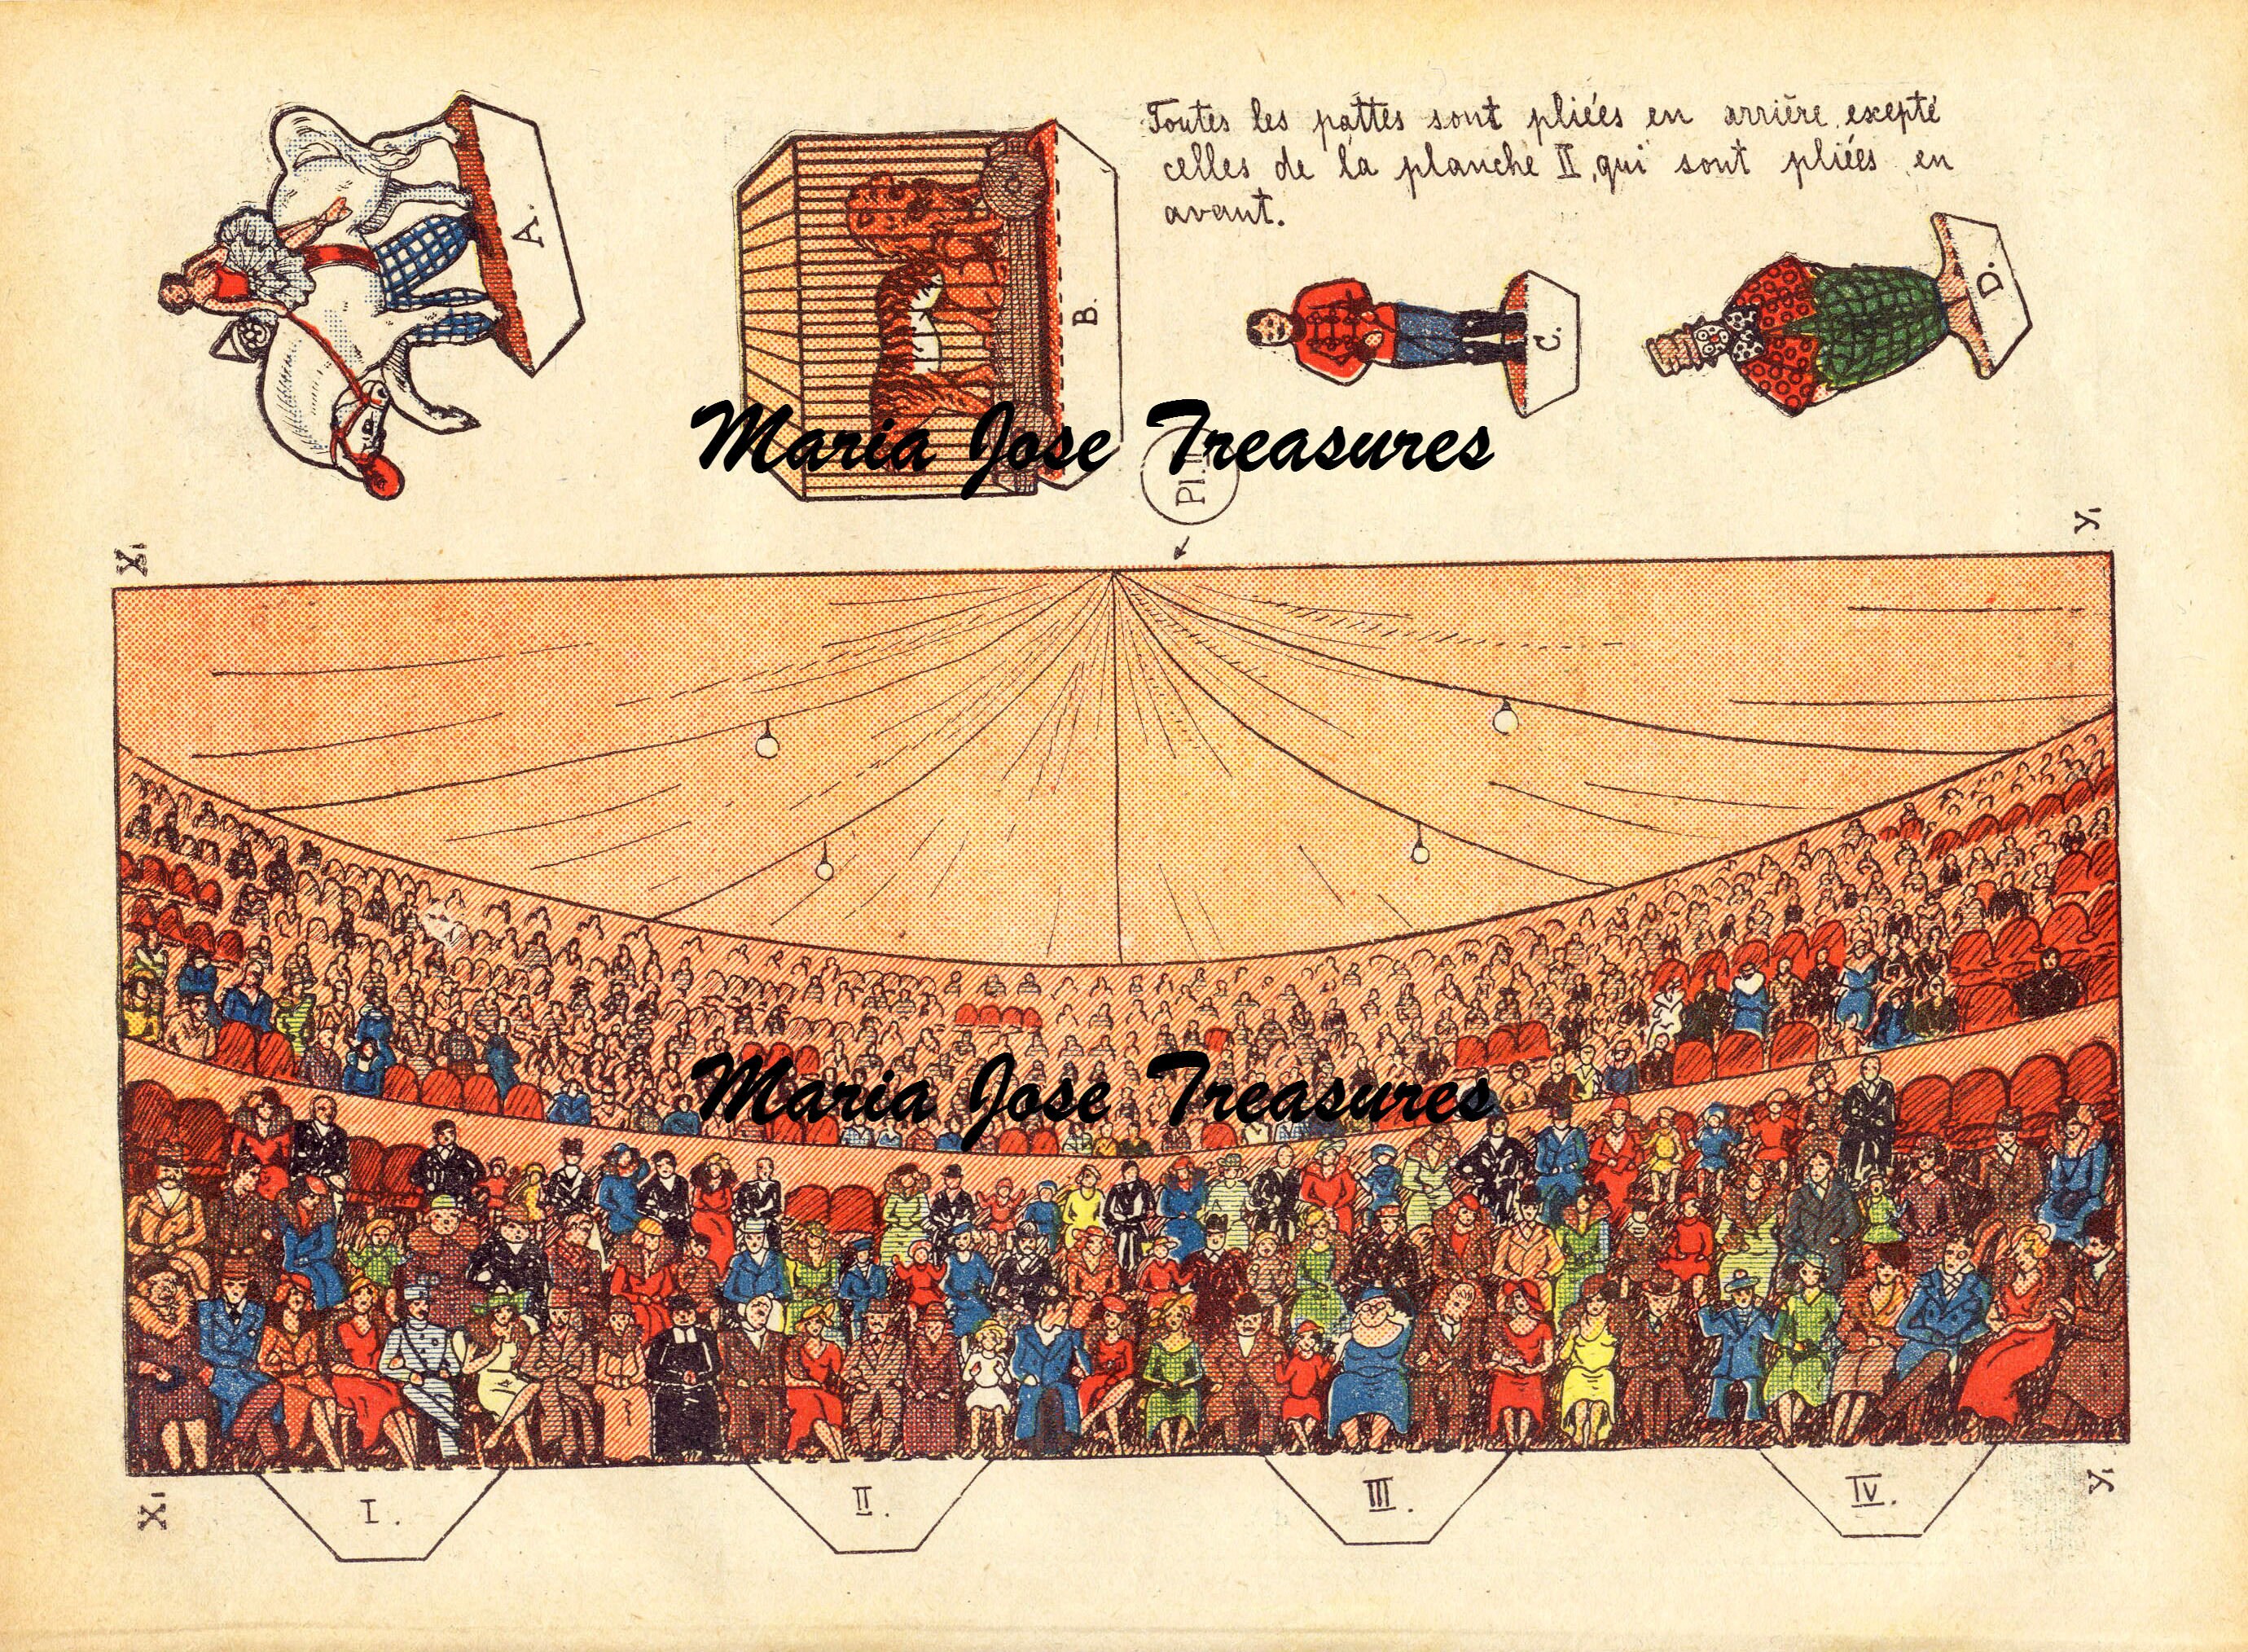 Toutes les pattes sont pliées en arrière, exepté
celles de la planche II, qui sont pliées en
avant.
A.
B.
C.
D.
Maria Jose Treasures
Pl. II
X₁
y₁
Maria Jose Treasures
X₁
I.
II.
III.
IV.
y₁